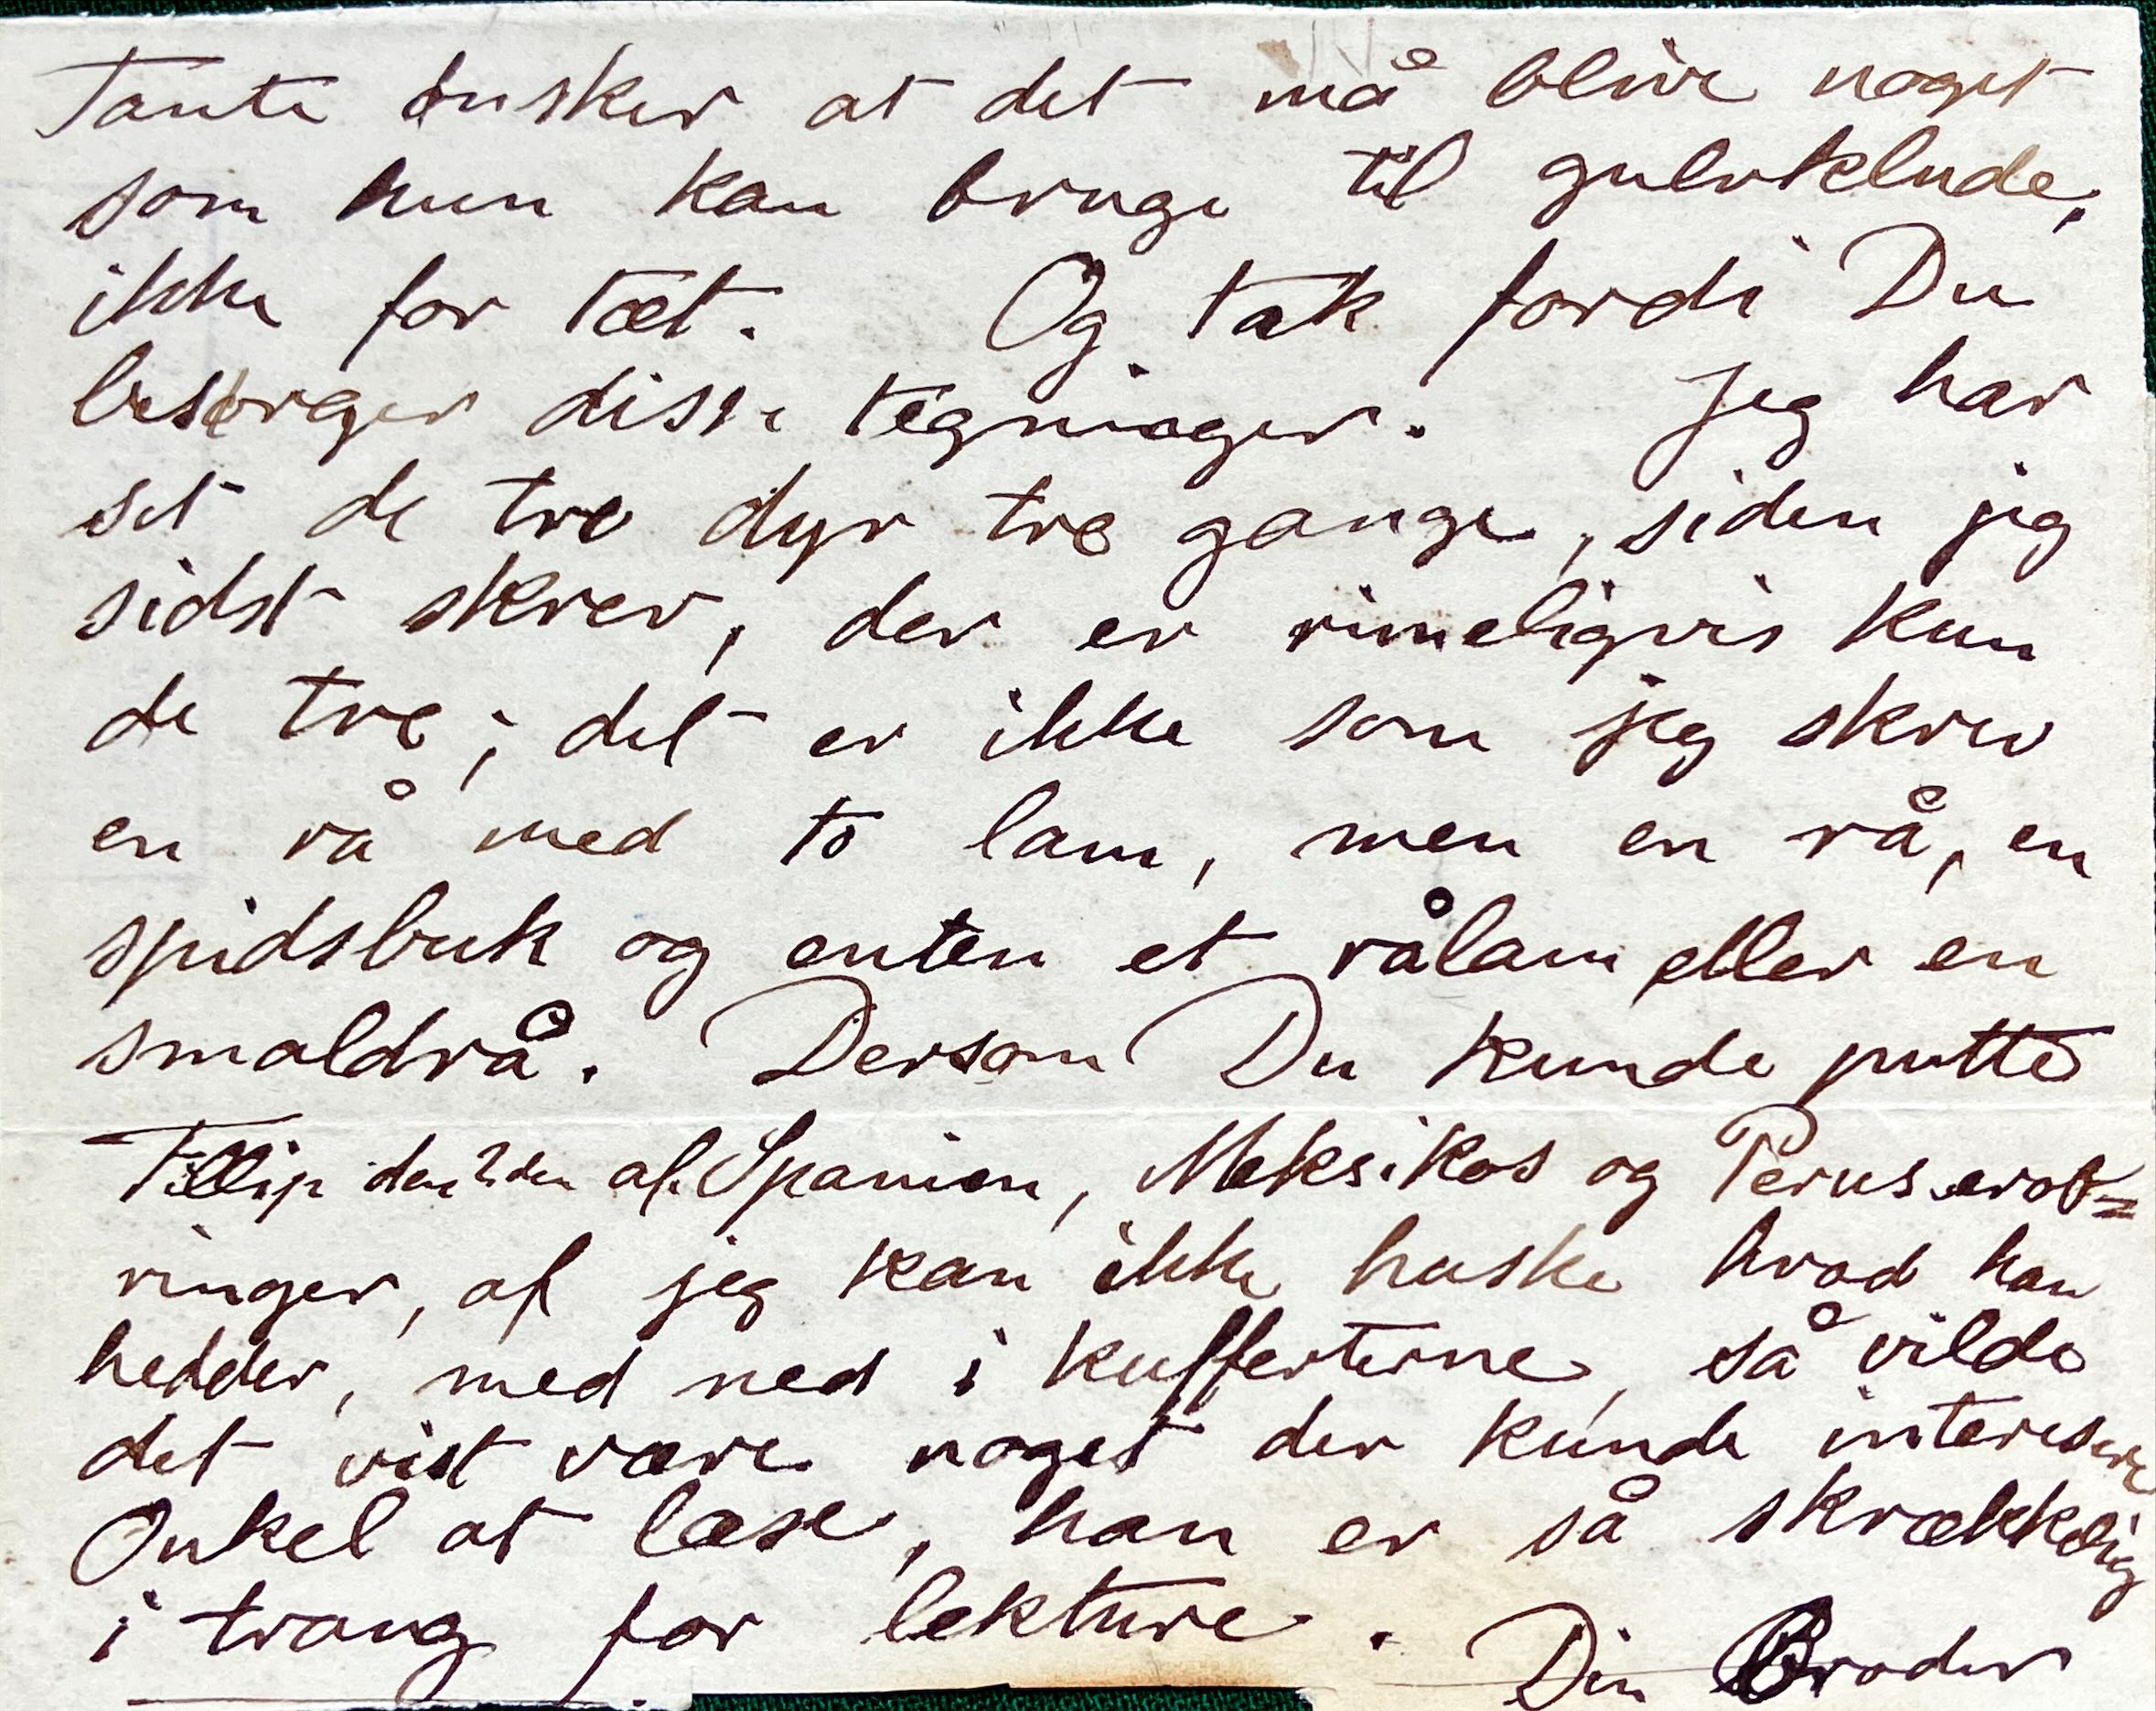 Tante ønsker at det må blive noget
som hun kan bruge til gulvklude,
ikke for tæt. Og tak fordi Du
besørger disse tegninger. Jeg har
set de tre dyr tre gange, siden jeg
sidst skrev, der er rimeligvis kun
de tre; det er ikke som jeg skrev
en rå med to lam, men en rå, en
spidsbuk og enten et rålam eller en
smaldrå. Dersom Du kunde putte
Fillip den 2den af Spanien, Meksikos og Perus erob=
ringer, af jeg kan ikke huske hvad han
hedder, med ned i kufferterne, så vilde
det vist være noget der kunde interesere
Onkel at læse, han er så skrækkelig
i trang for lekture. Din Broder